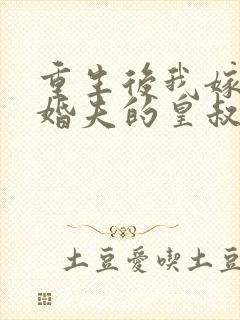 重生後我嫁
婚夫的皇叔
土豆愛喫土豆